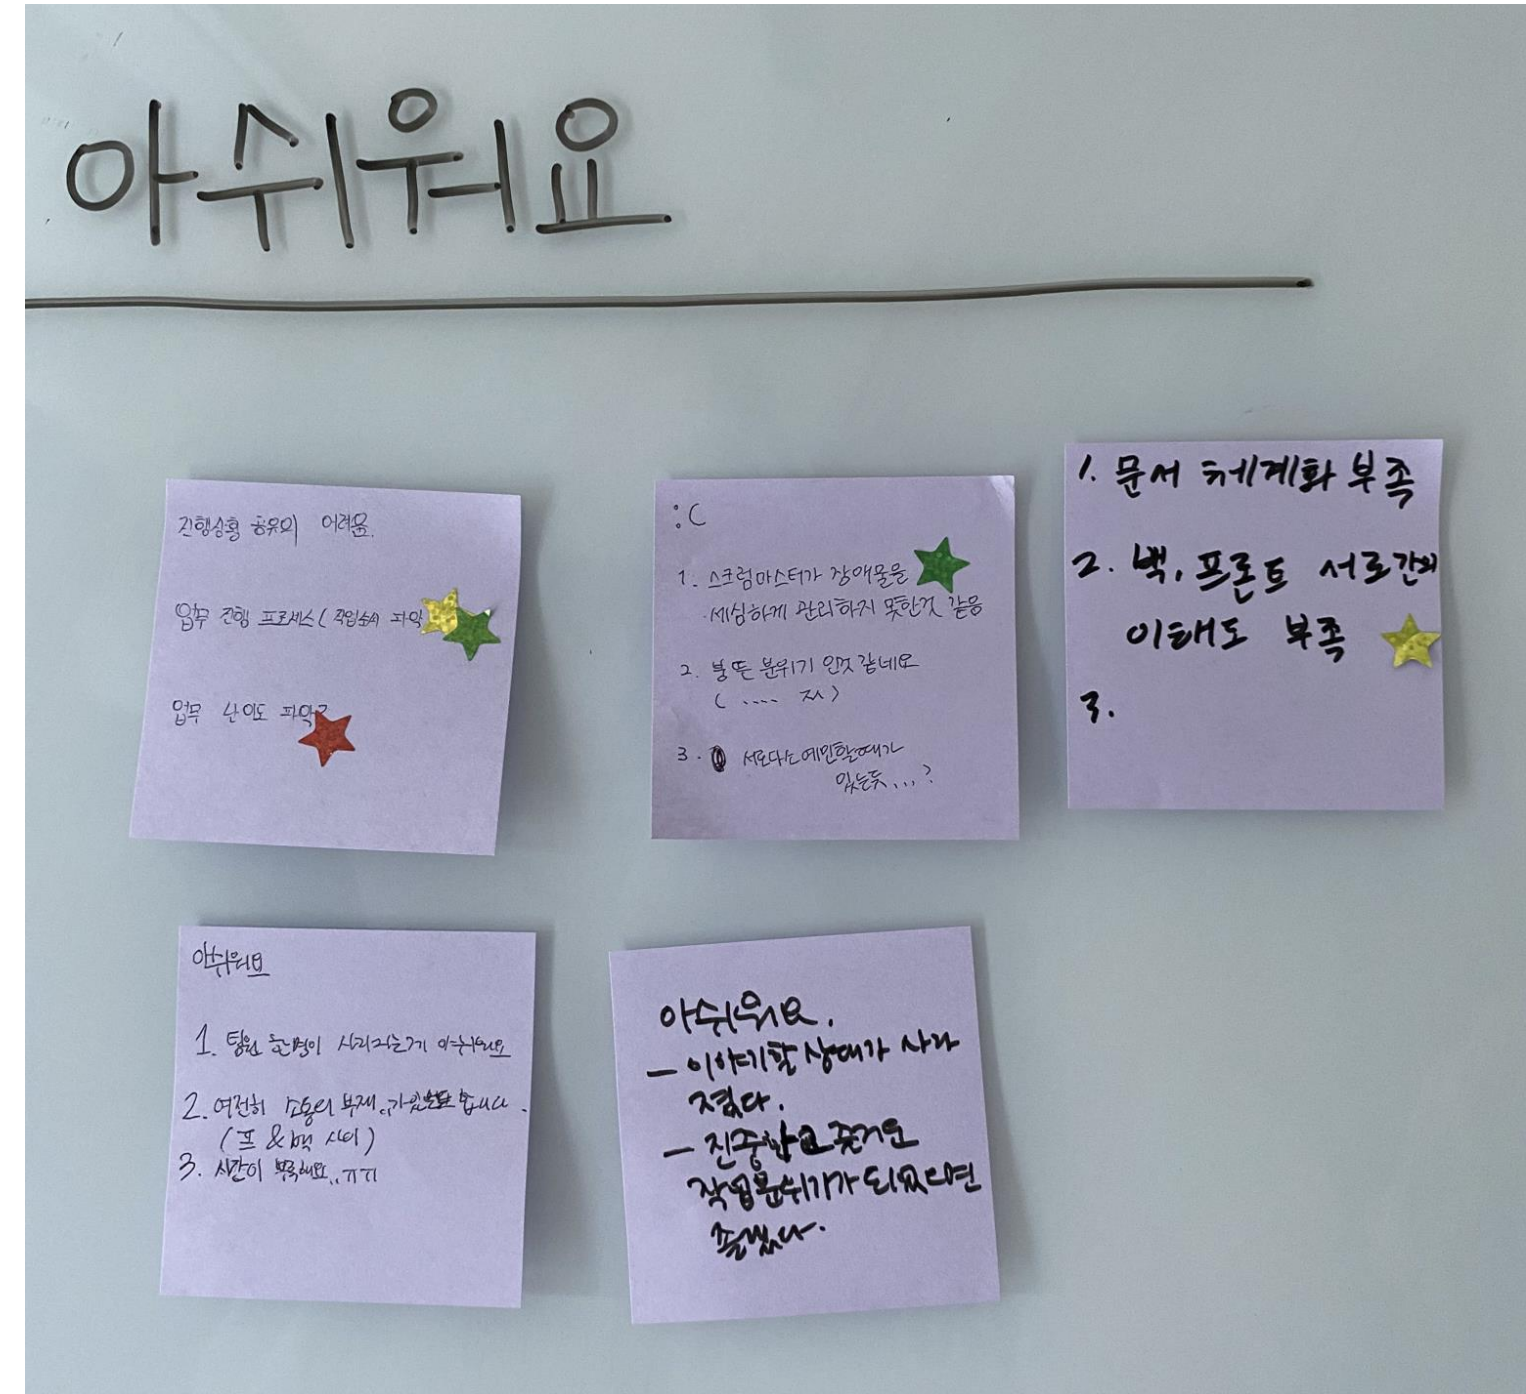 아쉬워요
진행상황 공유의 어려움.
업무 진행 프로세스( 작업순서 파악
업무 난이도 파악?
:C
1. 스크럼마스터가 장애물을
세심하게 관리하지 못한것 같음
2. 붕 뜬 분위기 인것 같네요
( .... )
3. 서로다소예민할때가
있는듯...?
1. 문서 체계화 부족
2. 백, 프론트 서로간의
이해도 부족
3.
아쉬워요
1. 팀원 한명이 사라지는게 아쉬워요
2. 여전히 소통의 부재..가 합니다.
(프 & 백 사이)
3. 시간이 부족해요..ㅠㅠ
아쉬워요.
- 이야기할 상대가 사라
졌다.
- 진중하고 즐거운
작업분위기가 되었다면
좋겠다.